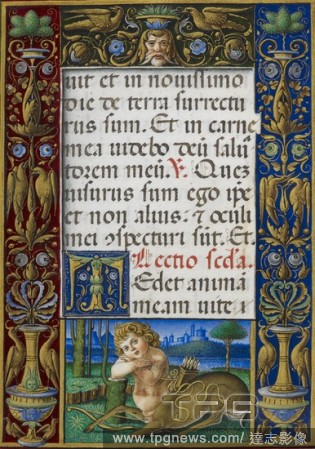 uit et in nouissimo
die de terra surrectu
rus sum. Et in carne
mea uidebo deū saluā
torem meū. V. Quez
uisurus sum ego ip̄e
et non alius: ⁊ oculi
mei ꝯspecturi sūt. Et.
Lectio scd̄a.
TEdet animā
meam uite
TPG
www.tpgnews.com/ 達志影像